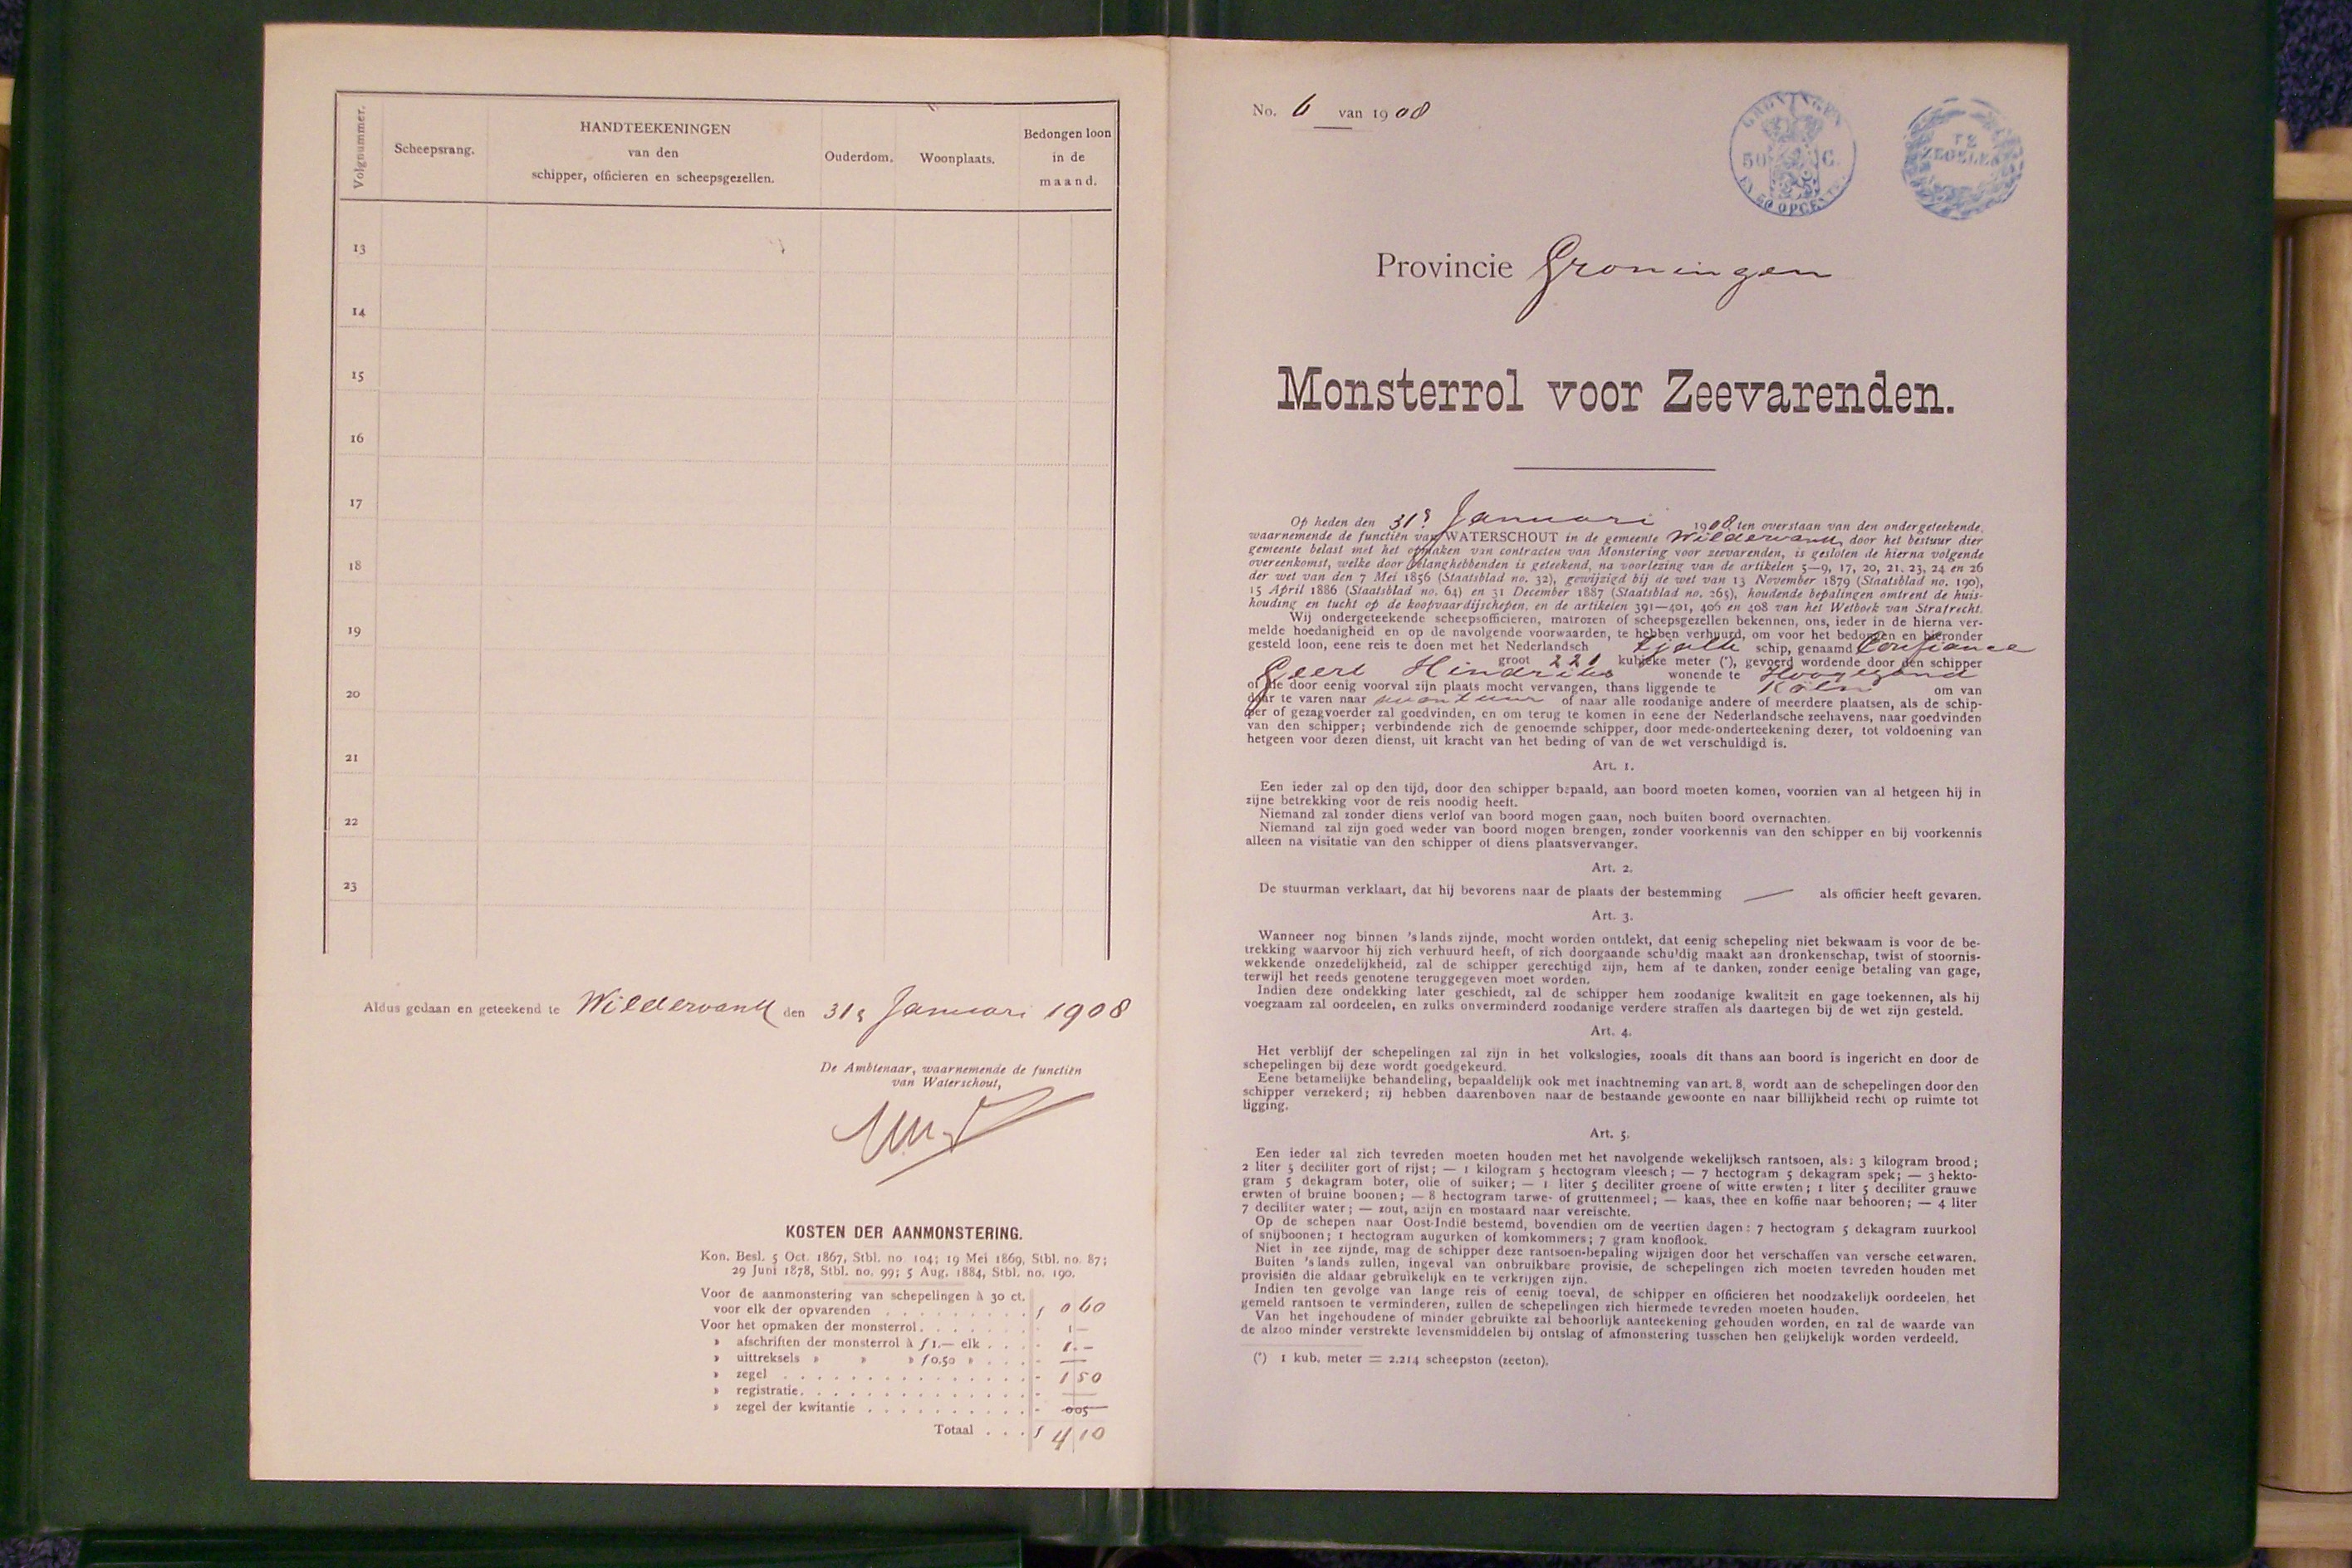 Volgnummer.
Scheepsrang.
HANDTEEKENINGEN
van den
schipper, officieren en scheepsgezellen.
Ouderdom.
Woonplaats.
Bedongen loon
in de
maand.
13
14
15
16
17
18
19
20
21
22
23
Aldus gedaan en geteekend te Wildervank den 31s Januari 1908
De Ambtenaar, waarnemende de functiën
van Waterschout,
KOSTEN DER AANMONSTERING.
Kon. Besl. 5 Oct. 1867, Stbl. no. 104; 19 Mei 1869, Stbl. no. 87;
29 Juni 1878, Stbl. no. 99; 5 Aug. 1884, Stbl. no. 190.
Voor de aanmonstering van schepelingen à 30 ct.
voor elk der opvarenden . . . . . . . . . f 0 60
Voor het opmaken der monsterrol . . . . . . . - 1 —
» afschriften der monsterrol à f 1.— elk . . . - 1.—
» uittreksels » » » f 0.50 » . . . - —
» zegel . . . . . . . . . . . . . . . - 1 50
» registratie . . . . . . . . . . . . . - —
» zegel der kwitantie . . . . . . . . . . - 005
Totaal . . . f 4 10
No. 6 van 1908
GRONINGEN
50 C.
EN 50 OPCENTN.
TE
ZEGELEN
Provincie Groningen
Monsterrol voor Zeevarenden.
Op heden den 31s Januari 1908 ten overstaan van den ondergeteekende,
waarnemende de functiën van WATERSCHOUT in de gemeente Wildervank, door het bestuur dier
gemeente belast met het opmaken van contracten van Monstering voor zeevarenden, is gesloten de hierna volgende
overeenkomst, welke door belanghebbenden is geteekend, na voorlezing van de artikelen 5—9, 17, 20, 21, 23, 24 en 26
der wet van den 7 Mei 1856 (Staatsblad no. 32), gewijzigd bij de wet van 13 November 1879 (Staatsblad no. 190),
15 April 1886 (Staatsblad no. 64) en 31 December 1887 (Staatsblad no. 265), houdende bepalingen omtrent de huis-
houding en tucht op de koopvaardijschepen, en de artikelen 391—401, 406 en 408 van het Wetboek van Strafrecht.
Wij ondergeteekende scheepsofficieren, matrozen of scheepsgezellen bekennen, ons, ieder in de hierna ver-
melde hoedanigheid en op de navolgende voorwaarden, te hebben verhuurd, om voor het bedongen en hieronder
gesteld loon, eene reis te doen met het Nederlandsch tjalk schip, genaamd Confiance
groot 221 kubieke meter (*), gevoerd wordende door den schipper
Geert Hindriks wonende te Hoogezand
of die door eenig voorval zijn plaats mocht vervangen, thans liggende te Köln om van
daar te varen naar avontuur of naar alle zoodanige andere of meerdere plaatsen, als de schip-
per of gezagvoerder zal goedvinden, en om terug te komen in eene der Nederlandsche zeehavens, naar goedvinden
van den schipper; verbindende zich de genoemde schipper, door mede-onderteekening dezer, tot voldoening van
hetgeen voor dezen dienst, uit kracht van het beding of van de wet verschuldigd is.
Art. 1.
Een ieder zal op den tijd, door den schipper bepaald, aan boord moeten komen, voorzien van al hetgeen hij in
zijne betrekking voor de reis noodig heeft.
Niemand zal zonder diens verlof van boord mogen gaan, noch buiten boord overnachten.
Niemand zal zijn goed weder van boord mogen brengen, zonder voorkennis van den schipper en bij voorkennis
alleen na visitatie van den schipper of diens plaatsvervanger.
Art. 2.
De stuurman verklaart, dat hij bevorens naar de plaats der bestemming — als officier heeft gevaren.
Art. 3.
Wanneer nog binnen 's lands zijnde, mocht worden ontdekt, dat eenig schepeling niet bekwaam is voor de be-
trekking waarvoor hij zich verhuurd heeft, of zich doorgaande schuldig maakt aan dronkenschap, twist of stoornis-
wekkende onzedelijkheid, zal de schipper gerechtigd zijn, hem af te danken, zonder eenige betaling van gage,
terwijl het reeds genotene teruggegeven moet worden.
Indien deze ondekking later geschiedt, zal de schipper hem zoodanige kwaliteit en gage toekennen, als hij
voegzaam zal oordeelen, en zulks onverminderd zoodanige verdere straffen als daartegen bij de wet zijn gesteld.
Art. 4.
Het verblijf der schepelingen zal zijn in het volkslogies, zooals dit thans aan boord is ingericht en door de
schepelingen bij deze wordt goedgekeurd.
Eene betamelijke behandeling, bepaaldelijk ook met inachtneming van art. 8, wordt aan de schepelingen door den
schipper verzekerd; zij hebben daarenboven naar de bestaande gewoonte en naar billijkheid recht op ruimte tot
ligging.
Art. 5.
Een ieder zal zich tevreden moeten houden met het navolgende wekelijksch rantsoen, als: 3 kilogram brood;
2 liter 5 deciliter gort of rijst; — 1 kilogram 5 hectogram vleesch; — 7 hectogram 5 dekagram spek; — 3 hekto-
gram 5 dekagram boter, olie of suiker; — 1 liter 5 deciliter groene of witte erwten; 1 liter 5 deciliter grauwe
erwten of bruine boonen; — 8 hectogram tarwe- of gruttenmeel; — kaas, thee en koffie naar behooren; — 4 liter
7 deciliter water; — zout, azijn en mostaard naar vereischte.
Op de schepen naar Oost-Indië bestemd, bovendien om de veertien dagen: 7 hectogram 5 dekagram zuurkool
of snijboonen; 1 hectogram augurken of komkommers; 7 gram knoflook.
Niet in zee zijnde, mag de schipper deze rantsoen-bepaling wijzigen door het verschaffen van versche eetwaren.
Buiten 's lands zullen, ingeval van onbruikbare provisie, de schepelingen zich moeten tevreden houden met
provisiën die aldaar gebruikelijk en te verkrijgen zijn.
Indien ten gevolge van lange reis of eenig toeval, de schipper en officieren het noodzakelijk oordeelen, het
gemeld rantsoen te verminderen, zullen de schepelingen zich hiermede tevreden moeten houden.
Van het ingehoudene of minder gebruikte zal behoorlijk aanteekening gehouden worden, en zal de waarde van
de alzoo minder verstrekte levensmiddelen bij ontslag of afmonstering tusschen hen gelijkelijk worden verdeeld.
(*) 1 kub. meter = 2.214 scheepston (zeeton).